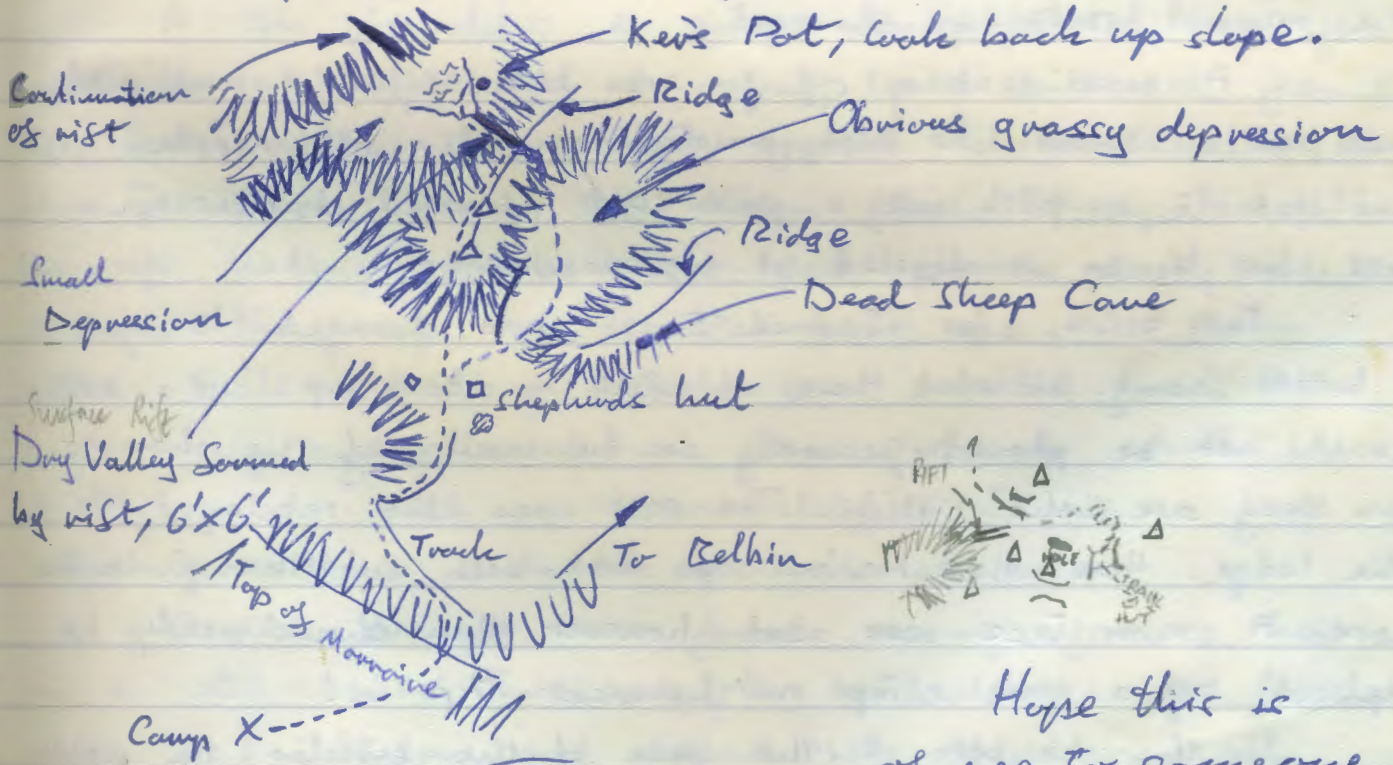 Kev's Pot, look back up slope.
Continuation
of rift
Ridge
Obvious grassy depression
Ridge
Small
Depression
Dead Sheep Cave
Shepherds hut
Surface Rift
Dry Valley formed
by rift, 6'x6'
Track
To Belbin
Top of Morraine
Camp X
RIFT
HOLE
HUT
Hope this is
of use to someone